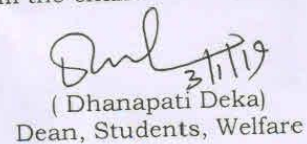 3/1/19
( Dhanapati Deka)
Dean, Students, Welfare